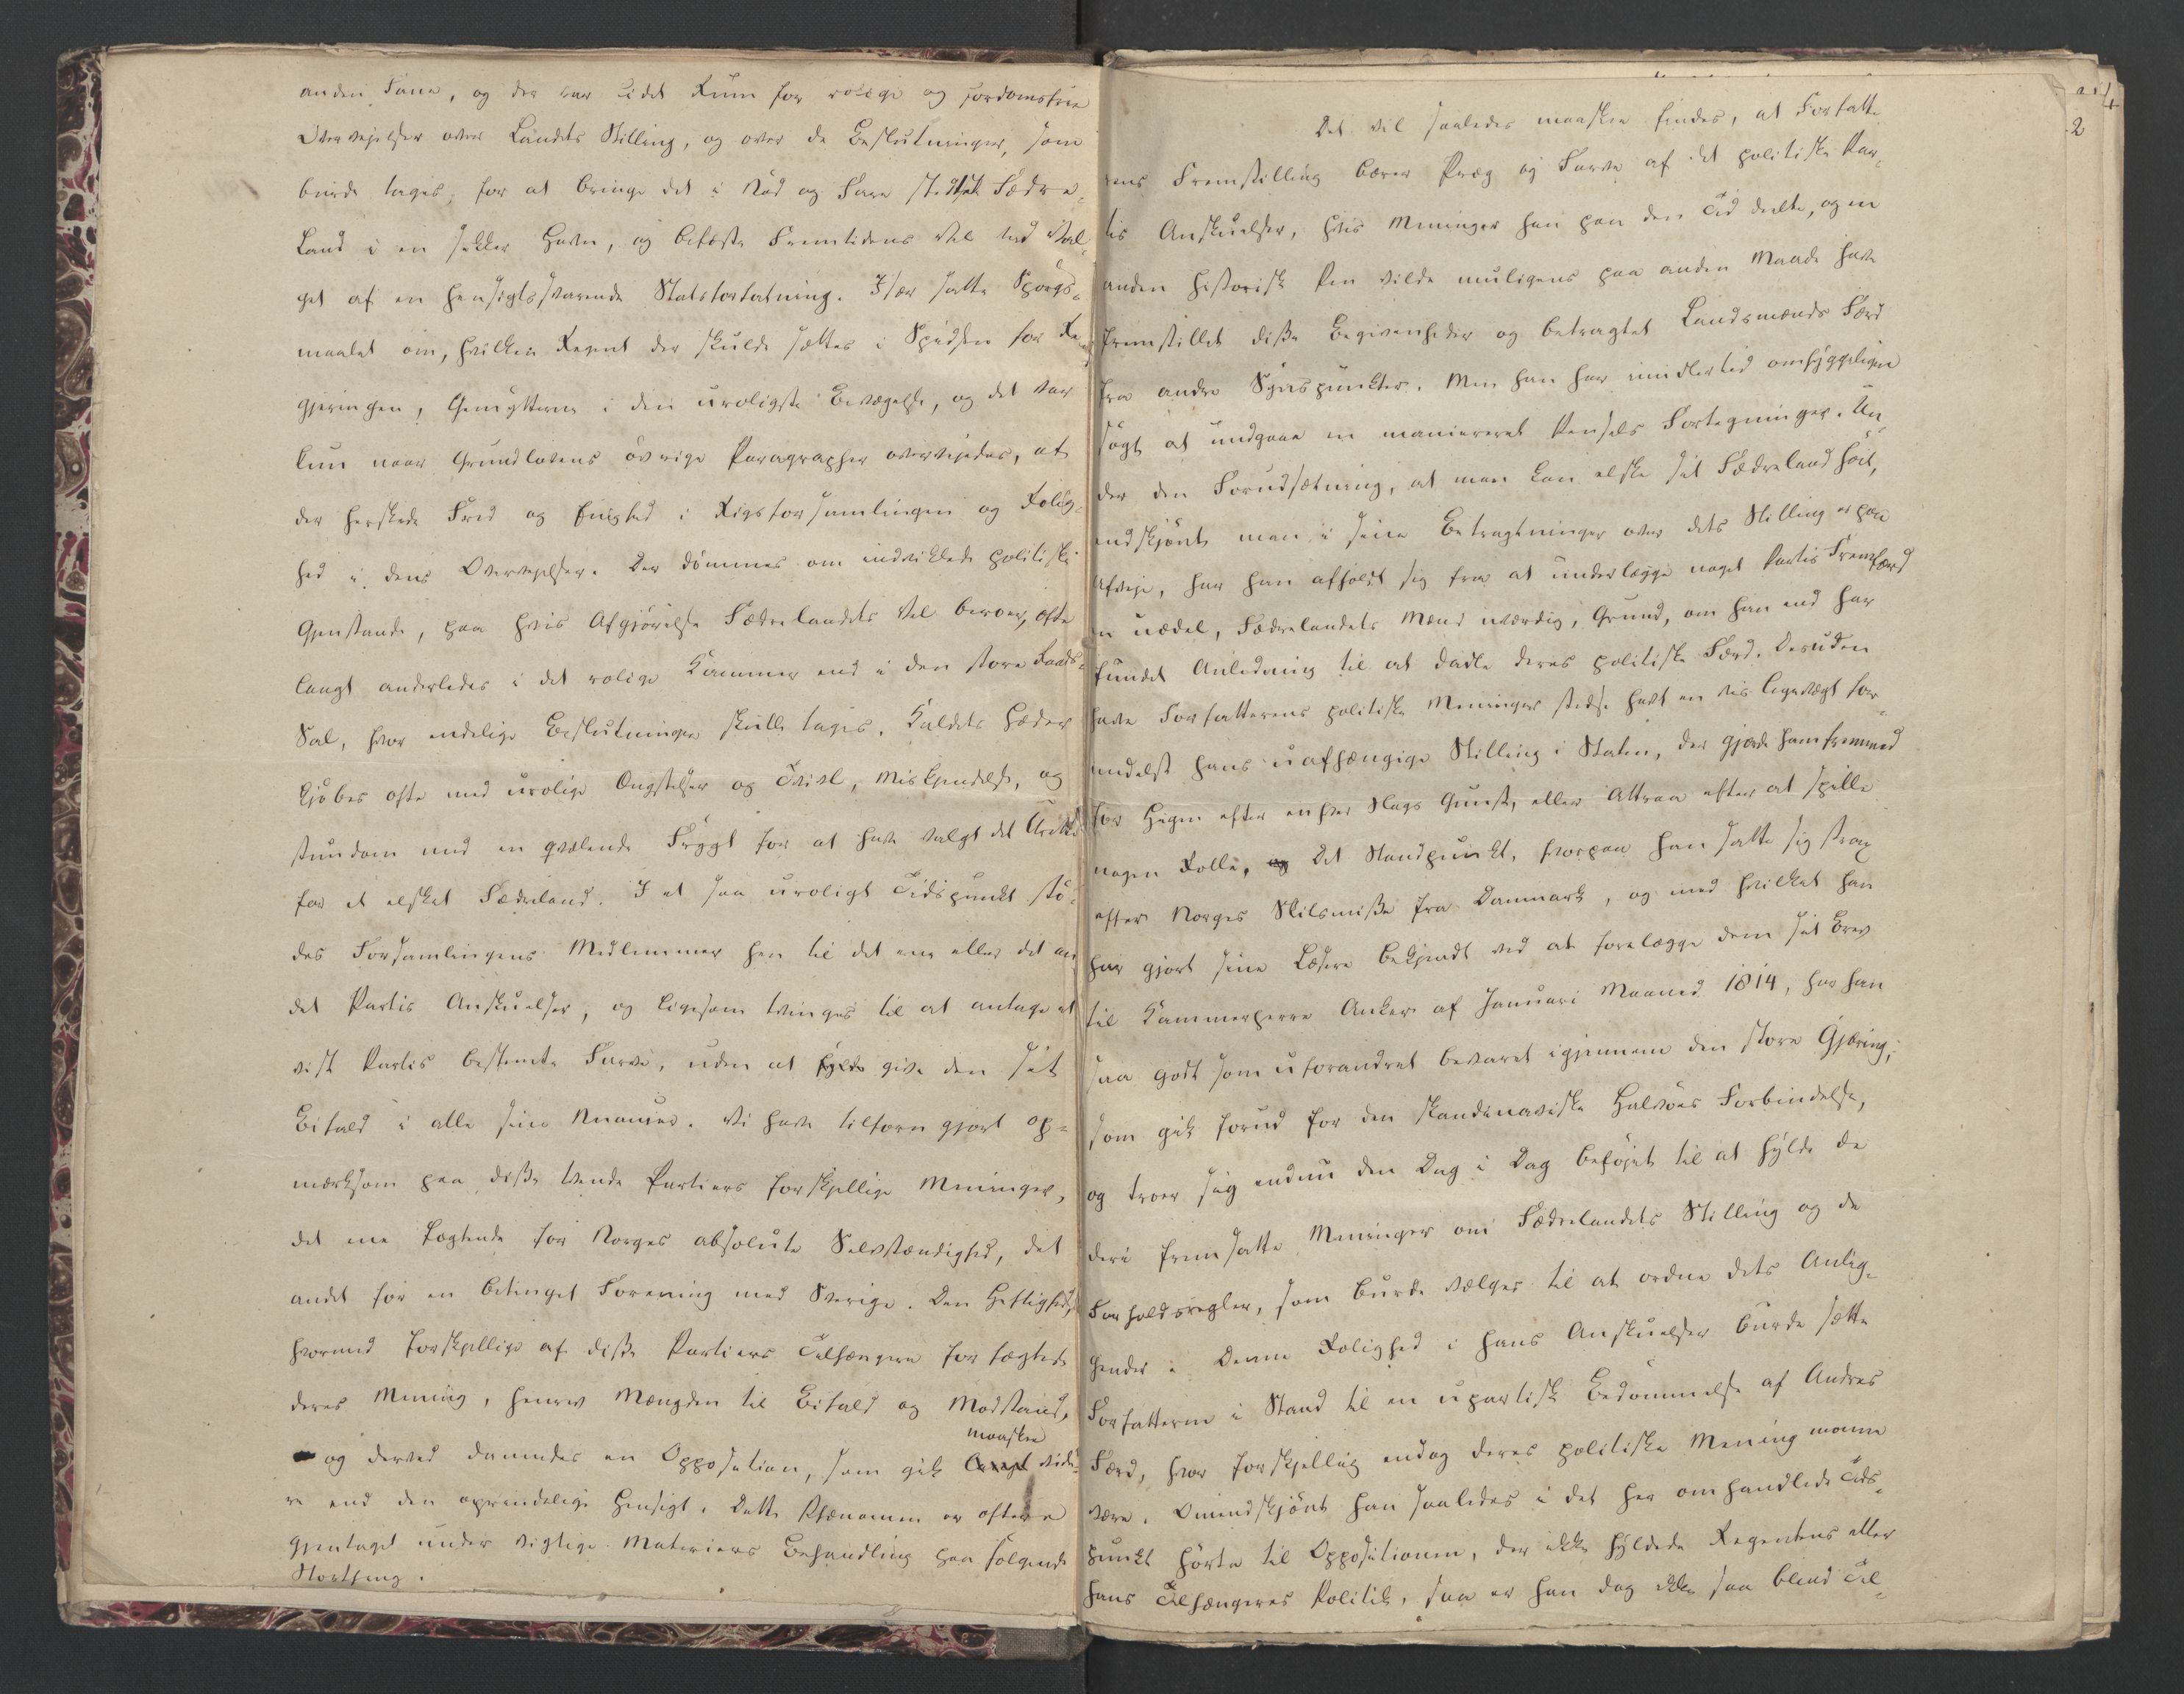 anden Fane, og der var lidet Rum for rolige og fordomsfrie
Overvejelser over Landets Stilling, og over de Beslutninger, som
burde tages, for at bringe det i Nød og Fare stedte Fædre-
land i en sikker Havn, og befæste Fremtidens Vel ved Val-
get af en hensigtssvarende Statsforfatning. Især satte Spørgs-
maalet om, hvilken Regent der skulde sættes i Spidsen for Re-
gjeringen, Gemytterne i den uroligste Bevægelse, og det var
kun naar Grundlovens øvrige Paragrapher overvejedes, at
der herskede Fred og Enighed i Rigsforsamlingen og Rolig-
hed i dens Overvejelser. Der dømmes om indviklede politiske
Gjenstande, paa hvis Afgjørelse Fædrelandets Vel beroer, ofte
langt anderledes i det rolige Kammer end i den store Raads-
Sal, hvor endelige Beslutninger skulle tages. Kaldets Hæder
kjøbes ofte med urolige Ængstelser og Tvivl, Miskjendelse, og
stundom med en qvælende Frygt for at have valgt det Urette
for et elsket Fædreland. I et saa uroligt Tidspunkt stø-
des Forsamlingens Medlemmer hen til det ene eller det an-
det Partis Anskuelser, og ligesom tvinges til at antage et
vist Partis bestemte Farve, uden at give den sit
Bifald i alle sine Nuancer. Vi have tilforn gjort op-
mærksom paa disse tvende Partiers forskjellige Meninger,
det ene fægtende for Norges absolute Selvstændighed, det
andet for en betinget Forening med Sverige. Den Heftighed,
hvormed forskjellige af disse Partiers Tilhængere forfægtede
deres Mening, henrev Mængden til Bifald og Modstand,
maaskee
og derved dannedes en Opposition, som gik vide-
re end den oprindelige Hensigt. Dette Phænomen er oftere
gjentaget under vigtige Materiers Behandling paa følgende
Storthing.
2
Det vil saaledes maaskee findes, at Forfatte-
rens Fremstilling bærer Præg og Farve af det politiske Par-
tis Anskuelser, hvis Meninger han paa den Tid deelte, og en
anden historisk Pen vilde muligens paa anden Maade have
fremstillet disse Begivenheder og betragtet Landsmænds Færd
fra andre Synspunkter. Men han har imidlertid omhyggeligen
søgt at undgaae en maniereret Pensels Fortegninger. Un-
der den Forudsætning, at man kan elske sit Fædreland høit,
endskjønt man i sine Betragtninger over dets Stilling er paa
Afveje, har han afholdt sig fra at underlægge noget Partis Fremfærd
en uædel, Fædrelandets Mænd uværdig, Grund, om han end har
fundet Anledning til at dadle deres politiske Færd. Desuden
have Forfatterens politiske Meninger stedse havt en vis Ligevægt for-
medelst hans uafhængige Stilling i Staten, der gjorde ham fremmed
for Higen efter enhver Slags Gunst, eller Attraa efter at spille
nogen Rolle, og Det Standpunkt, hvorpaa han satte sig strax
efter Norges Skilsmisse fra Danmark, og med hvilket han
har gjort sine Læsere bekjendt ved at forelægge dem sit Brev
til Kammerherre Anker af Januari Maaned 1814, har han
saa godt som uforandret bevaret igjennem den store Gjæring,
som gik forud for den skandinaviske Halvøes Forbindelse,
og troer sig endnu den Dag i Dag beføjet til at hylde de
deri fremsatte Meninger om Fædrelandets Stilling og de
Forholdsregler, som burde vælges til at ordne dets Anlig-
gender. Denne Rolighed i hans Anskuelser burde sætte
Forfatteren i Stand til en upartisk Bedømmelse af Andres
Færd, hvor forskjellig endog deres politiske Mening monne
være. Omendskjønt han saaledes i det her omhandlede Tids-
punkt hørte til Oppositionen, der ikke hyldede Regentens eller
hans Tilhængeres Politik, saa er han dog ikke saa blind Til-